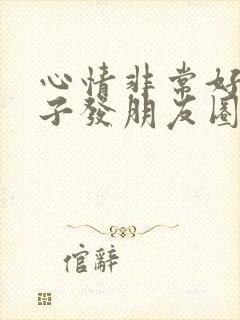 心情非常好
子發朋友圈
倌辭